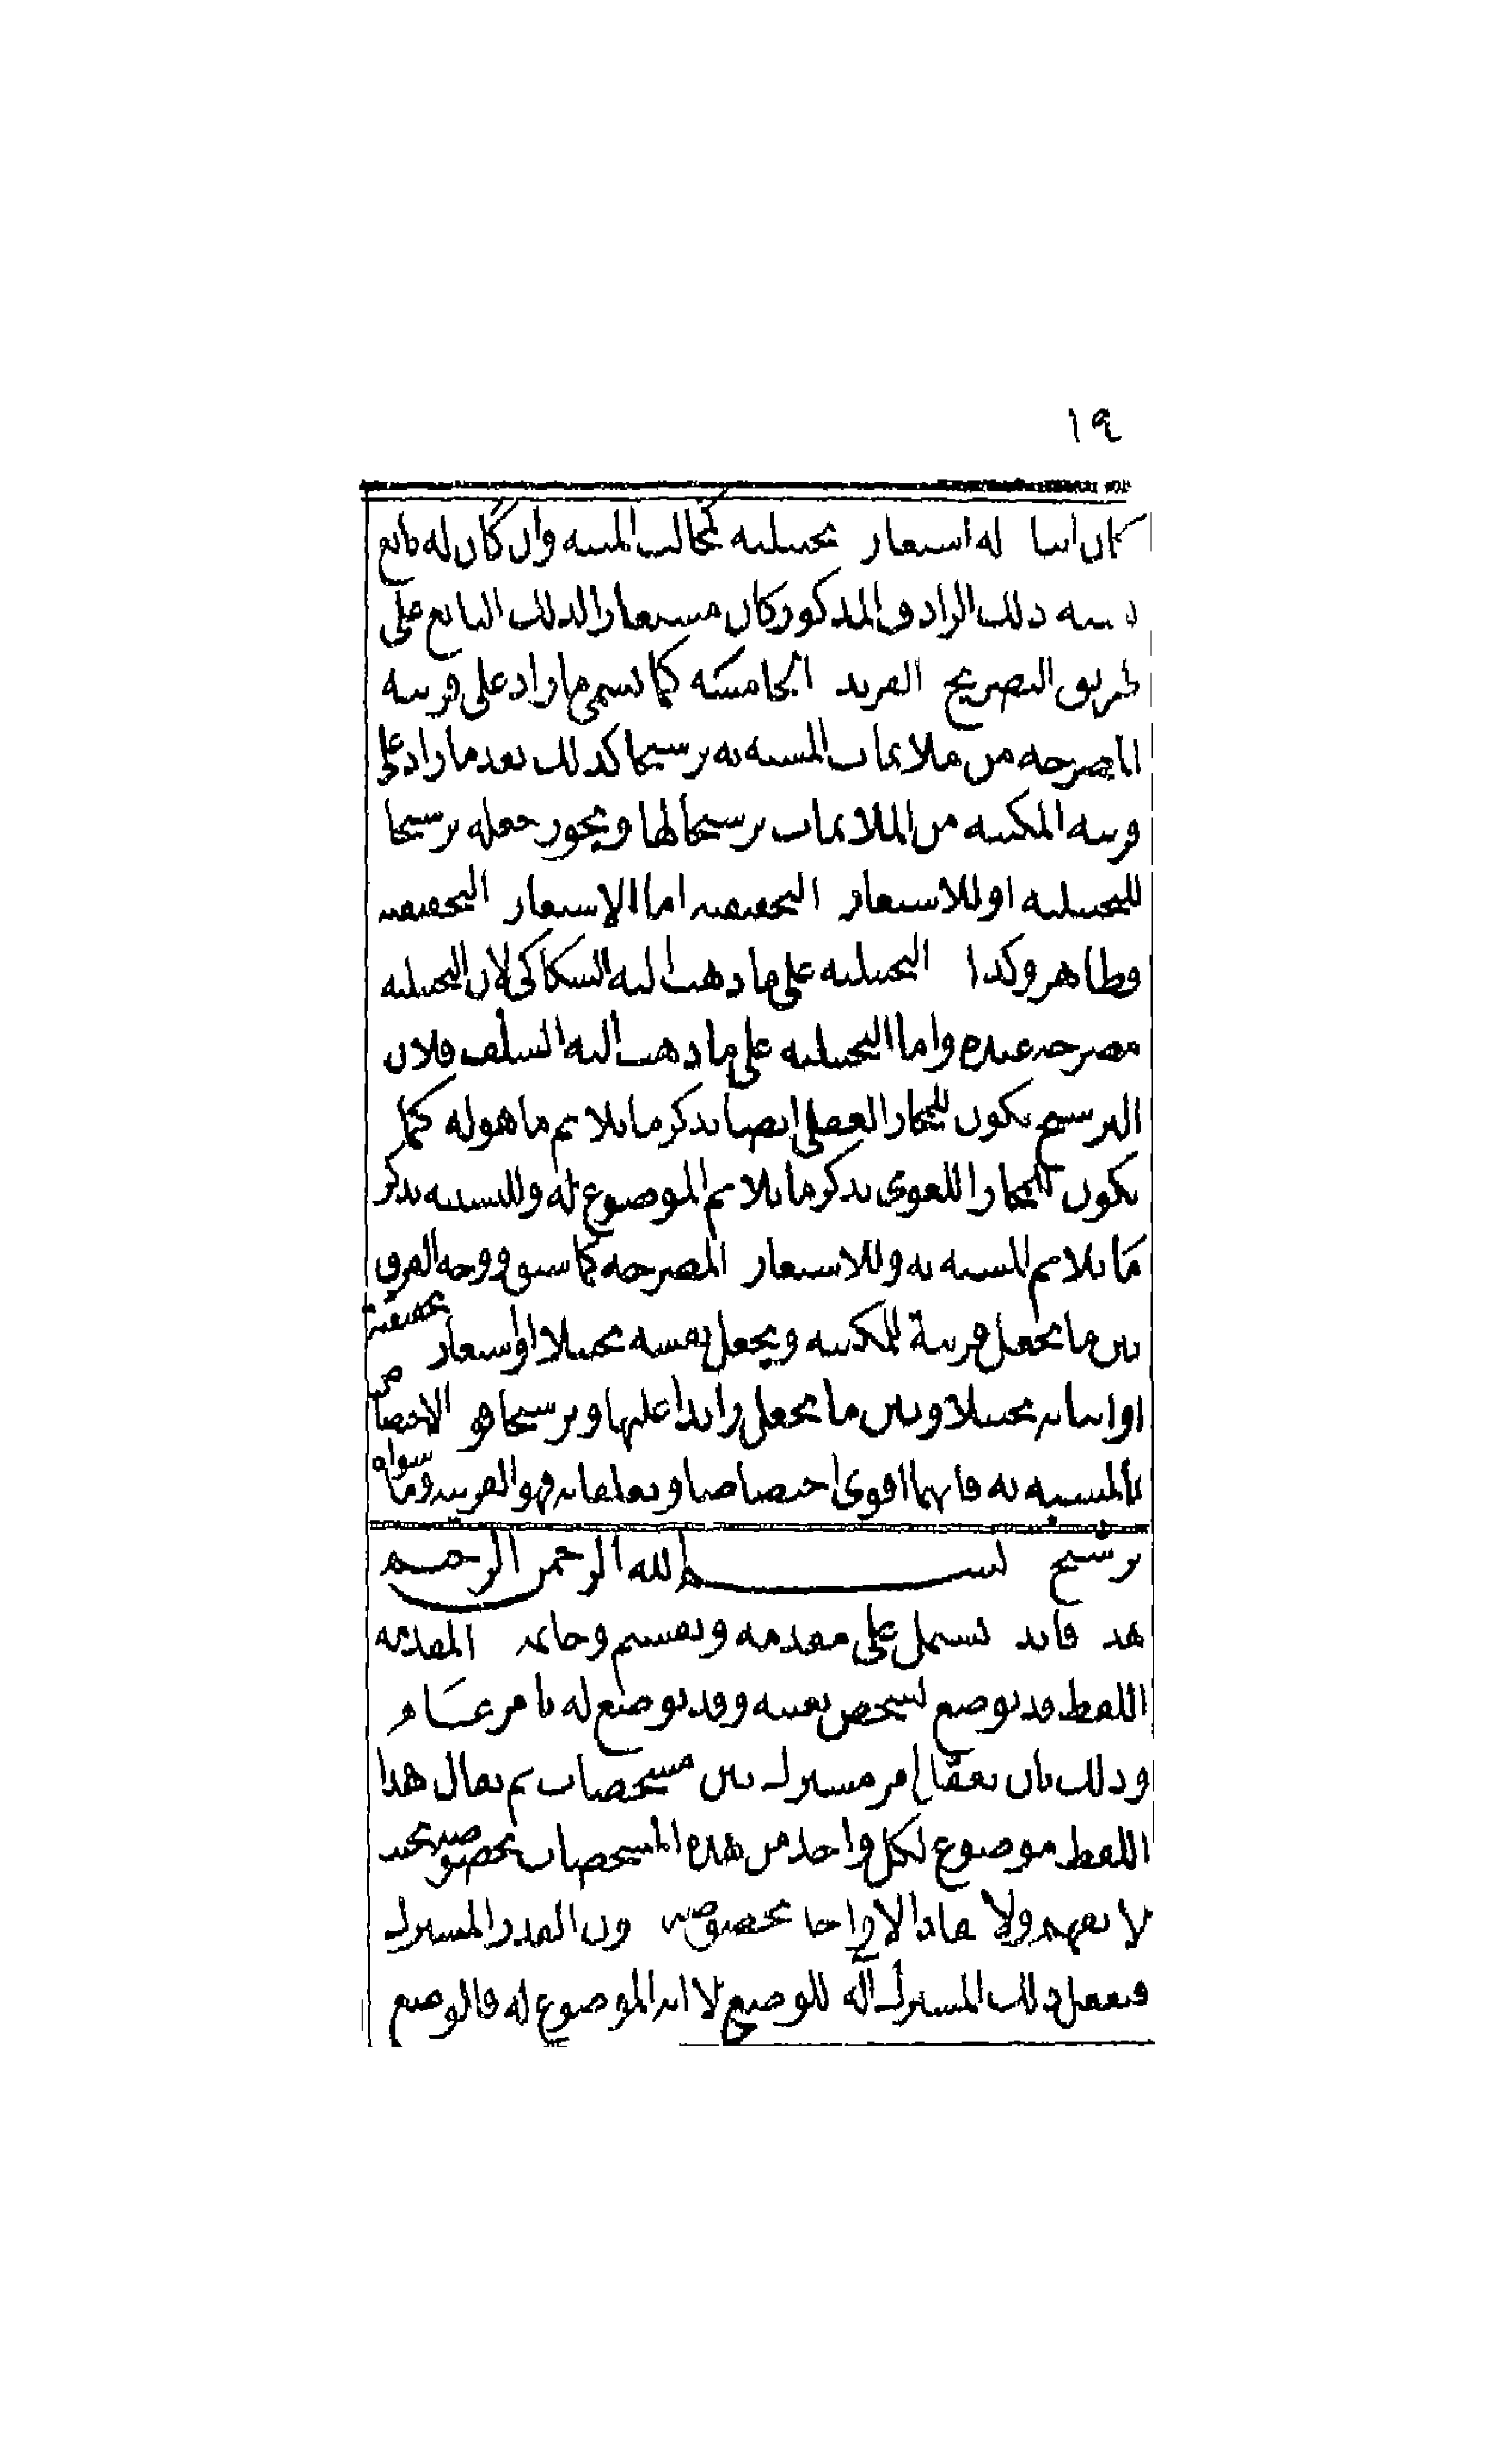 ١٩
كان اثباته له استعارة تخييلية كمخالب المنية وان كان له تابع
يشبه ذلك الرادف المذكور كان مستعارا لذلك التابع على
طريق التصريح الفريدة الخامسة كما يسمى ما زاد على قرينة
المصرحة من ملايمات المشبه به ترشيحا كذلك يعد ما زاد على
قرينة المكنية من الملايمات ترشيحا لها ويجوز جعله ترشيحا
للتخييلية او للاستعارة التحقيقية اما الاستعارة التحقيقية
فظاهر وكذا التخييلية على ما ذهب اليه السكاكي لان التخييلية
مصرحة عنده واما التخييلية على ما ذهب اليه السلف فلان
الترشيح يكون للمجاز العقلي ايضا بذكر ما يلايم ما هو له كما
يكون للمجاز اللغوي بذكر ما يلايم الموضوع له وللتشبيه بذكر
ما يلايم المشبه به وللاستعارة المصرحة كما سبق ووجه الفرق
بين ما يجعل قرينة للمكنية ويجعل نفسه تخييلا او استعارة تحقيقية
او اثباته تخييلا وبين ما يجعل زايدا عليها وترشيحا قوة الاختصاص
بالمشبه به فايهما اقوى اختصاصا وتعلقا به فهو القرينة وما سواه
ترشيح بسم الله الرحمن الرحيم
هذه فايدة تشتمل على مقدمة وتقسيم وخاتمة المقدمة
اللفظ قد يوضع لشخص بعينه وقد يوضع له بامر عام
وذلك بان يعقل امر مشترك بين مشخصات ثم يقال هذا
اللفظ موضوع لكل واحد من هذه المشخصات بخصوصه بحيث
لا يفهم ولا يفاد الا واحد بخصوصه دون القدر المشترك
فتعقل ذلك المشترك آلة للوضع لا انه الموضوع له فالوضع